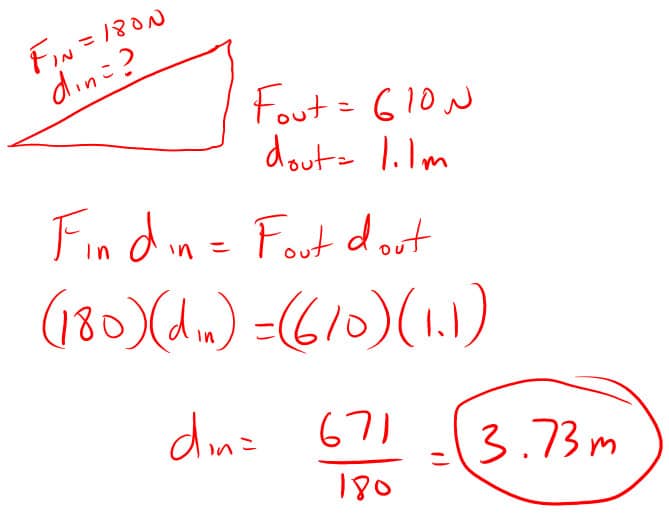 F_IN = 180N
d_in = ?
F_out = 610 N
d_out = 1.1m
F_in d_in = F_out d_out
(180)(d_in) = (610)(1.1)
d_in = 671/180 = 3.73 m